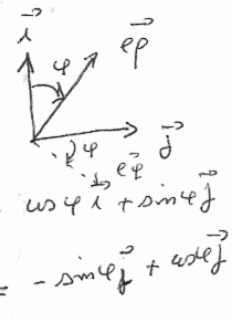 i⃗
φ
e⃗ρ
φ
j⃗
e⃗φ
cosφ i⃗ + sinφ j⃗
= - sinφ j⃗ + cosφ j⃗